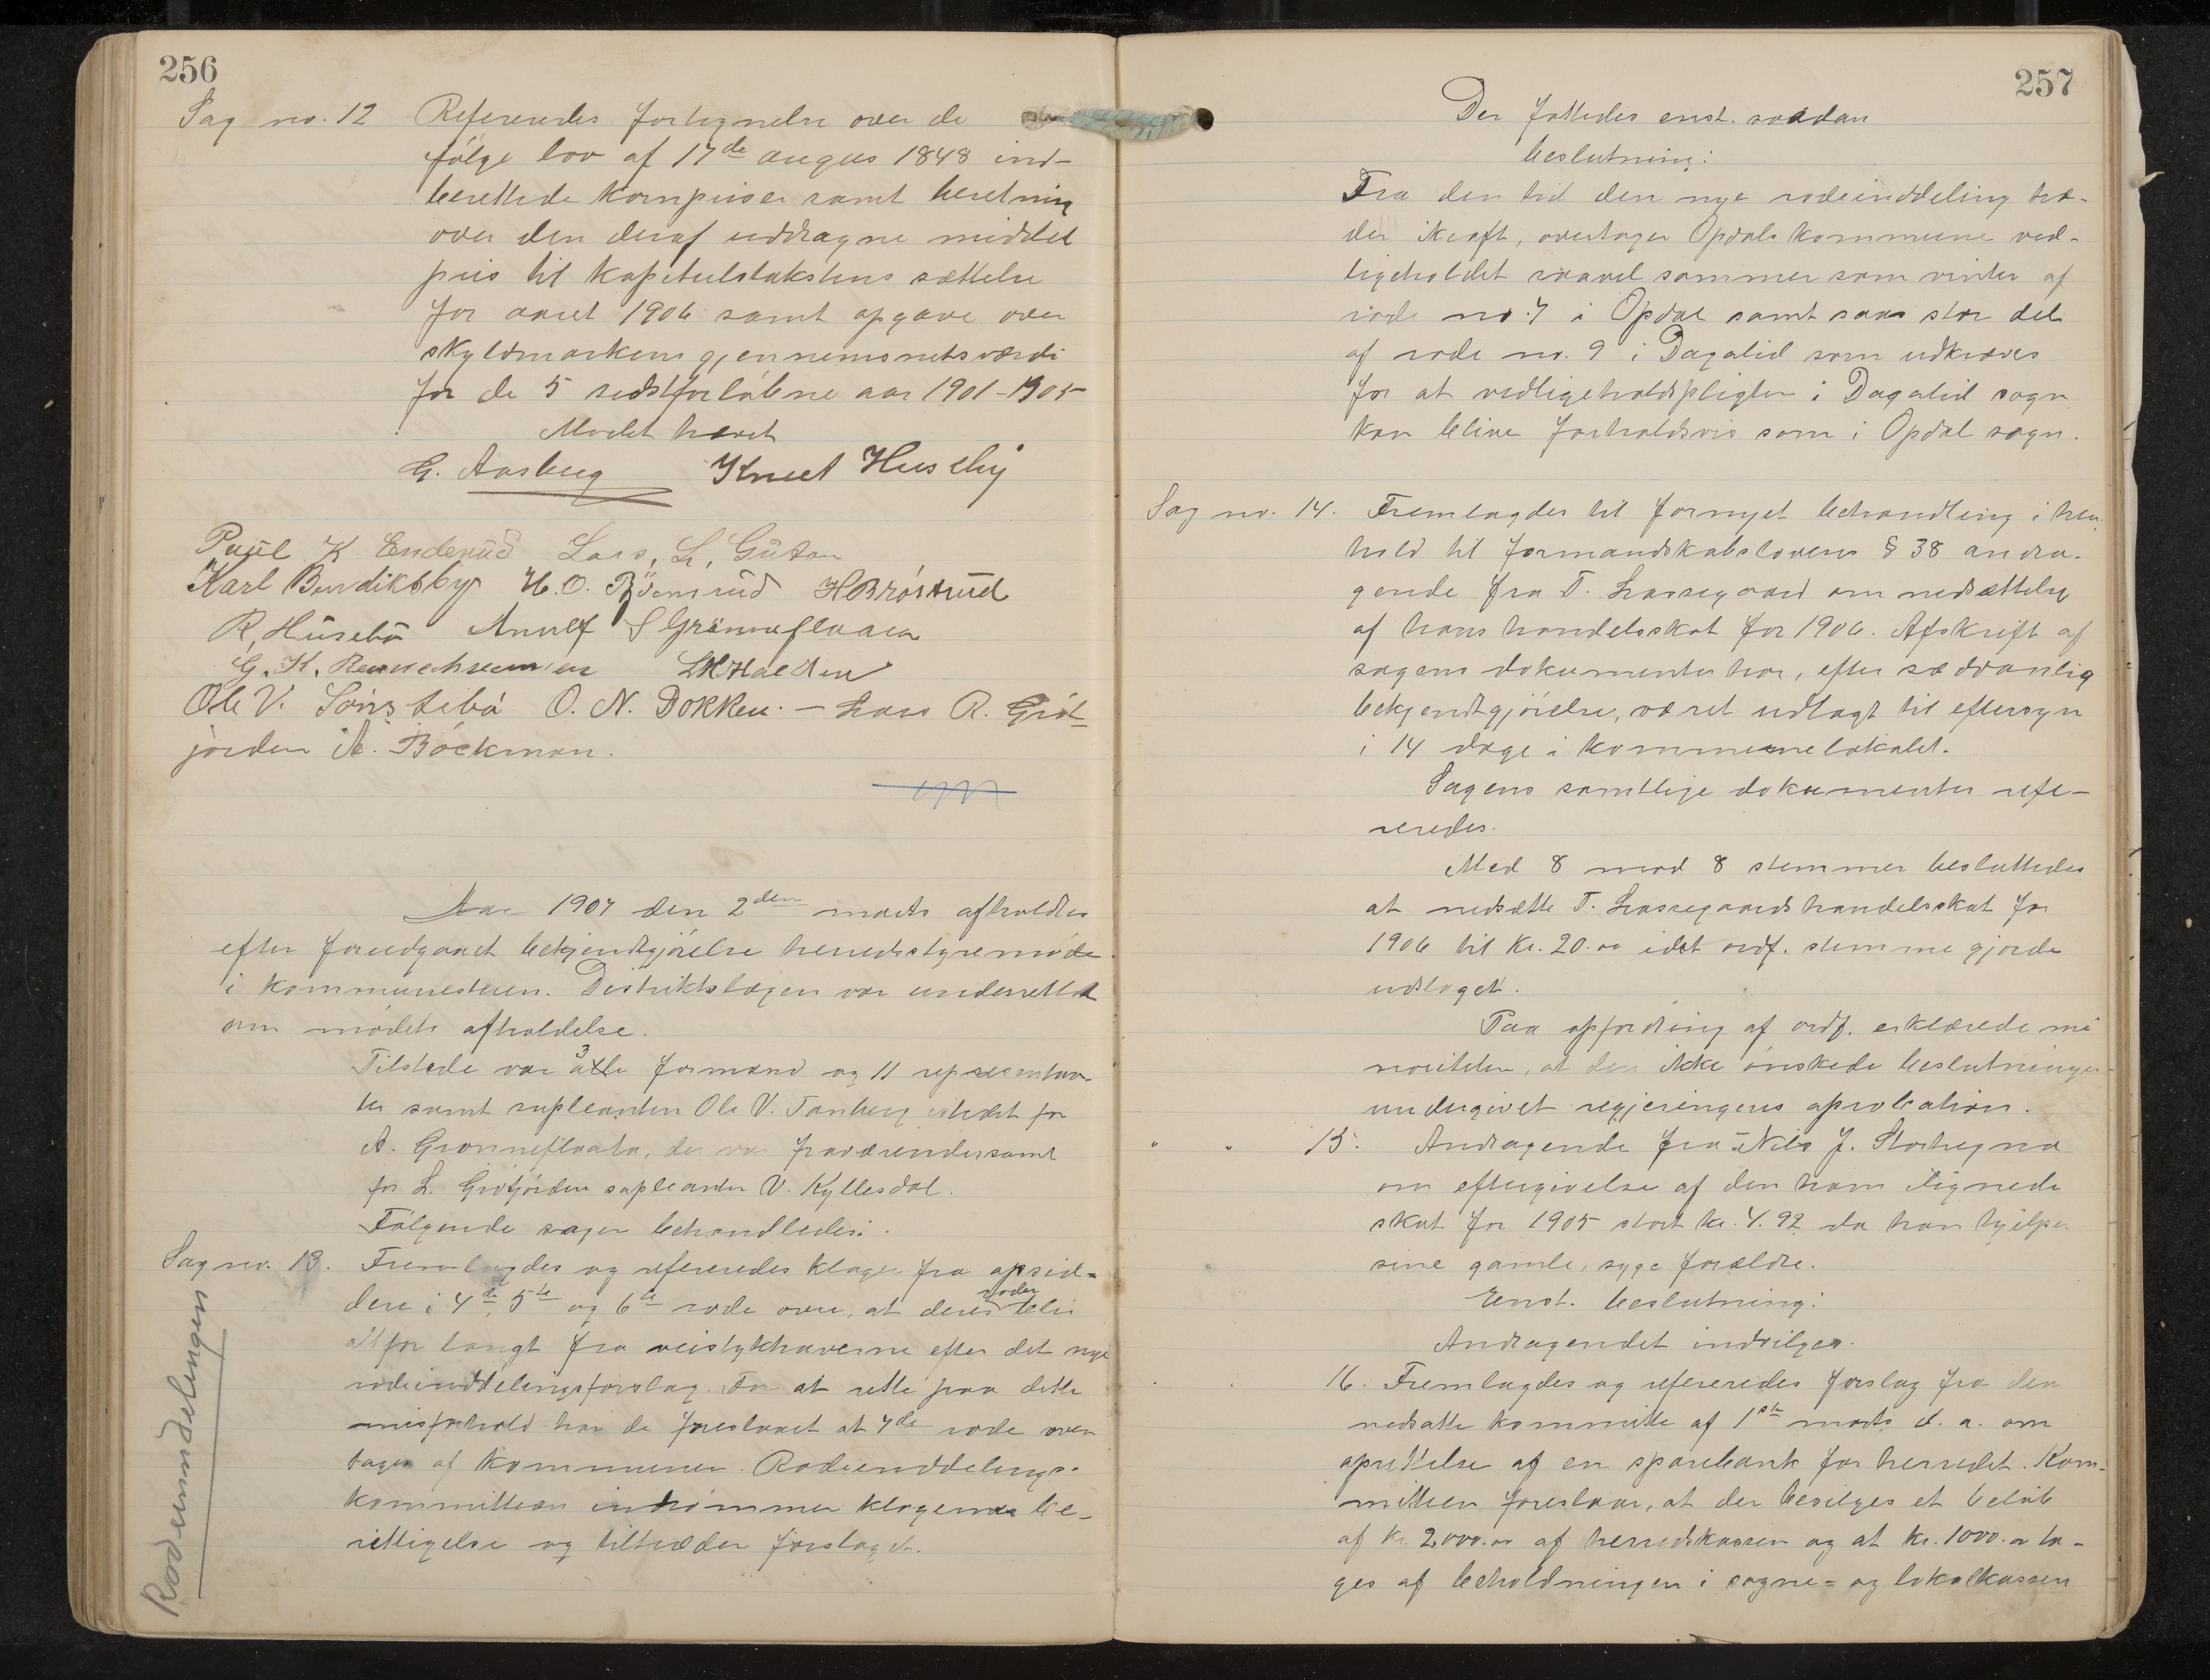 256
Sag no. 12 Refereredes fortegnelse over de
følge lov af 17de augus 1848 ind-
berettede kornpriser samt beretning
over den deraf uddragne middel
pris til kapitelstakstens sættelse
for aaret 1906 samt opgave over
skyldmarkens gjennemsnitsværdi
for de 5 sidstforløbne aar 1901-1905
Mødet hævet
G. Aasberg Knut Huseby
Paul K. Enderud Lars, L, Güton
Karl Bendiksby H. O. Bjømrud H Brøstrud
R, Husebø Anulf S Grønneflaata
G. K. L H Halsten
Ole V. Sønstebø O. N. Dokken. — Lars R. Grøt-
jorden A. Böckman.
Aar 1907 den 2den marts afholdtes
efter foredgaaet bekjendtgjørelse herredsstyremøde
i kommunestuen. Distriktslægen var underrettet
om mødets afholdelse.
Tilstede var 3 alle formænd og 11 repræsentan-
ter samt supleanten Ole V. Tanberg istedet for
A. Grønneflaata, der var fraværende samt
for L. Grøtjorden supleanten V. Kyllesdal.
Følgende sager behandledes:
Sag no. 13. Fremlagdes og refereredes klage fra opsid-
dere i 4de, 5te og 6te rode over, at deres roder blir
altfor langt fra veistykkaverne efter det nye
rodeinddelingsforslag. For at rette paa dette
misforhold har de foreslaaet at 7de rode over
tages af kommunen. Rodeinddelings-
kommitteen indrømmer klagernes be-
rettigelse og tiltræder forslaget.
Rodeinndelingen
257
Der fattedes enst. saadan
beslutning:
Fra den tid den nye rodeinddeling træ-
der ikraft, overtager Opdals kommune ved-
ligeholdet saavel sommer som vinter af
rode no. 7 i Opdal samt saa stor del
af rode no. 9 i Dagalid som udkræves
for at vedligeholdspligten i Dagalid sogn
kan blive forholdsvis som i Opdal sogn.
Sag no. 14. Fremlagdes til fornyet behandling i hen
hold til formandskabslovens § 38 andra-
gende fra T. Lassegaard om nedsættelse
af hans handelsskat for 1906. Afskrift af
sagens dokumenter har, efter sædvanlig
bekjendtgjørelse, været udlagt til eftersyn
i 14 dage i kommunelokalet.
Sagens samtlige dokumenter refe-
reredes.
Med 8 mod 8 stemmer besluttedes
at nedsætte T. Lassegaards handelsskat for
1906 til kr. 20.00 idet ordf. stemme gjorde
udslaget.
Paa opfordring af ordf. erklærede mi
noriteten, at den ikke ønskede beslutningen
undergivet regjeringens aprobation.
" " 15. Andragende fra Nils J. Stortegna
om eftergivelse af den ham ilignede
skat for 1905 stort kr. 4.92 da han hjelper
sine gamle, syge forældre.
Enst. beslutning:
Andragendet indvilges.
16. Fremlagdes og refereredes forslag fra den
nedsatte kommitte af 1ste marts d. a. om
oprettelse af en sparebank for herredet. Kom-
mitteen foreslaar, at der bevilges et beløb
af kr. 2000.00 af herredskassen og at kr. 1000.00 ta-
ges af beholdningen i sogne= og lokalkassen